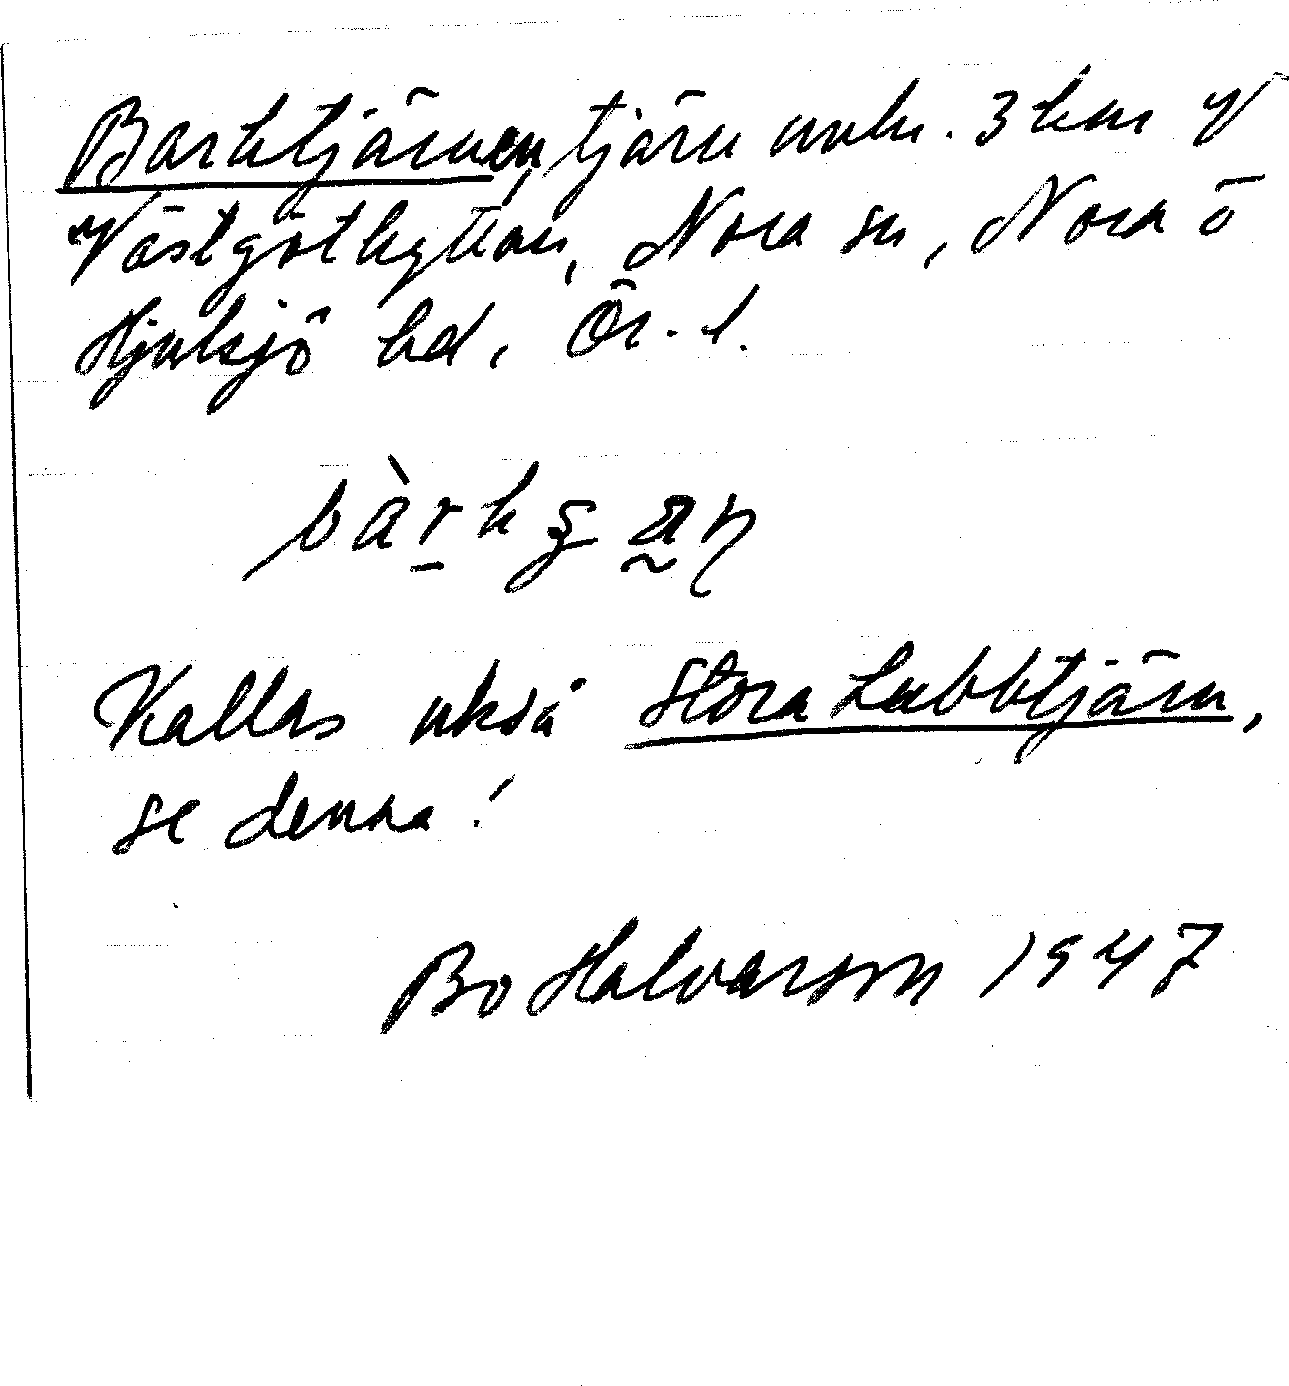 Barktjärnen, tjärn unk. 3 km V
Västgöthyttan, Nora sn, Nora o
Hjulsjö bd, Ör. l.
bàrk
Kallas också Stora Lubbtjärn,
se denna!
Bo Halvarson 1947